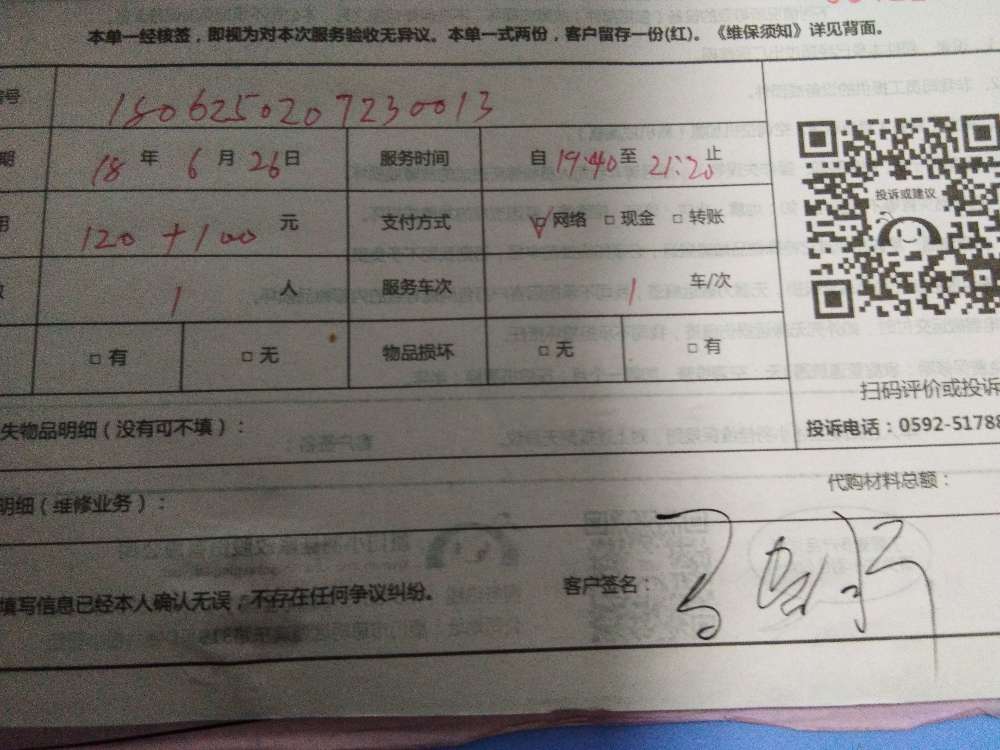 本单一经核签，即视为对本次服务验收无异议。本单一式两份，客户留存一份(红)。《维保须知》详见背面。
号 1806250207230013
期 18 年 6 月 26 日 服务时间 自 19:40 至 21:20 止
用 120 + 100 元 支付方式 网络 □ 现金 □ 转账
数 1 人 服务车次 1 车/次
□ 有 □ 无 物品损坏 □ 无 □ 有
投诉或建议
扫码评价或投诉
投诉电话：0592-51788
失物品明细（没有可不填）：
代购材料总额：
明细（维修业务）：
填写信息已经本人确认无误，不存在任何争议纠纷。 客户签名：